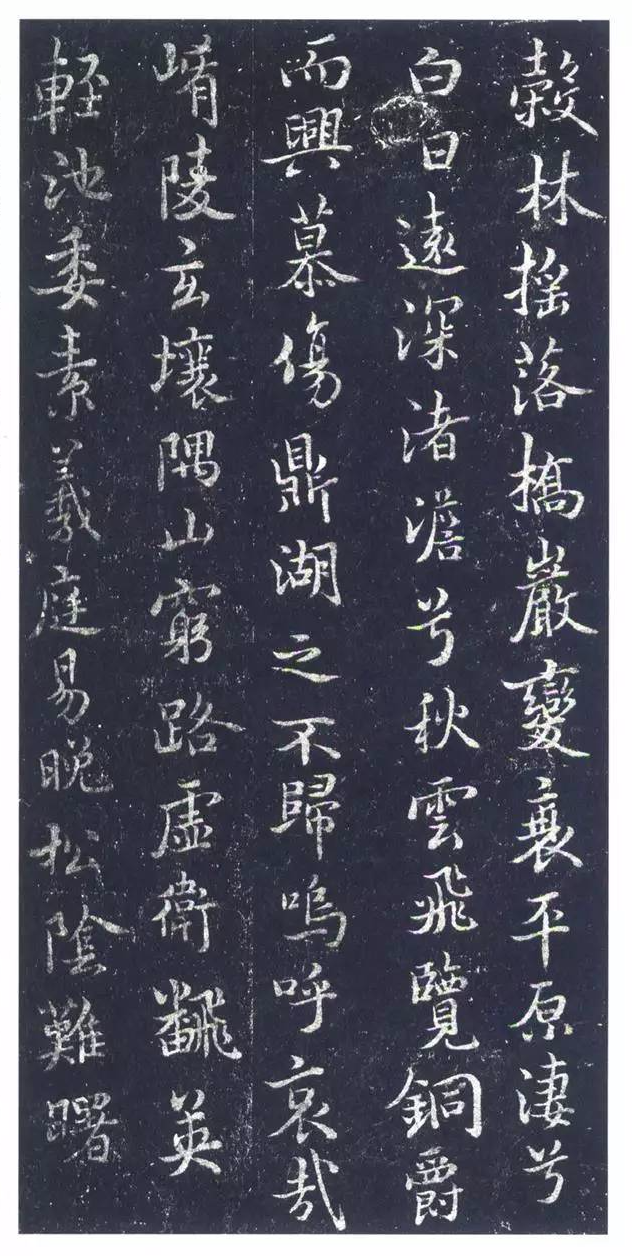 穀林搖落橋巖變衰平原淒兮
白日遠深渚澹兮秋雲飛覽銅爵
而興慕傷鼎湖之不歸嗚呼哀哉
崤陵玄壤隅山窮路虛衛飜英
輕池委素羲庭易晚松陰難曙